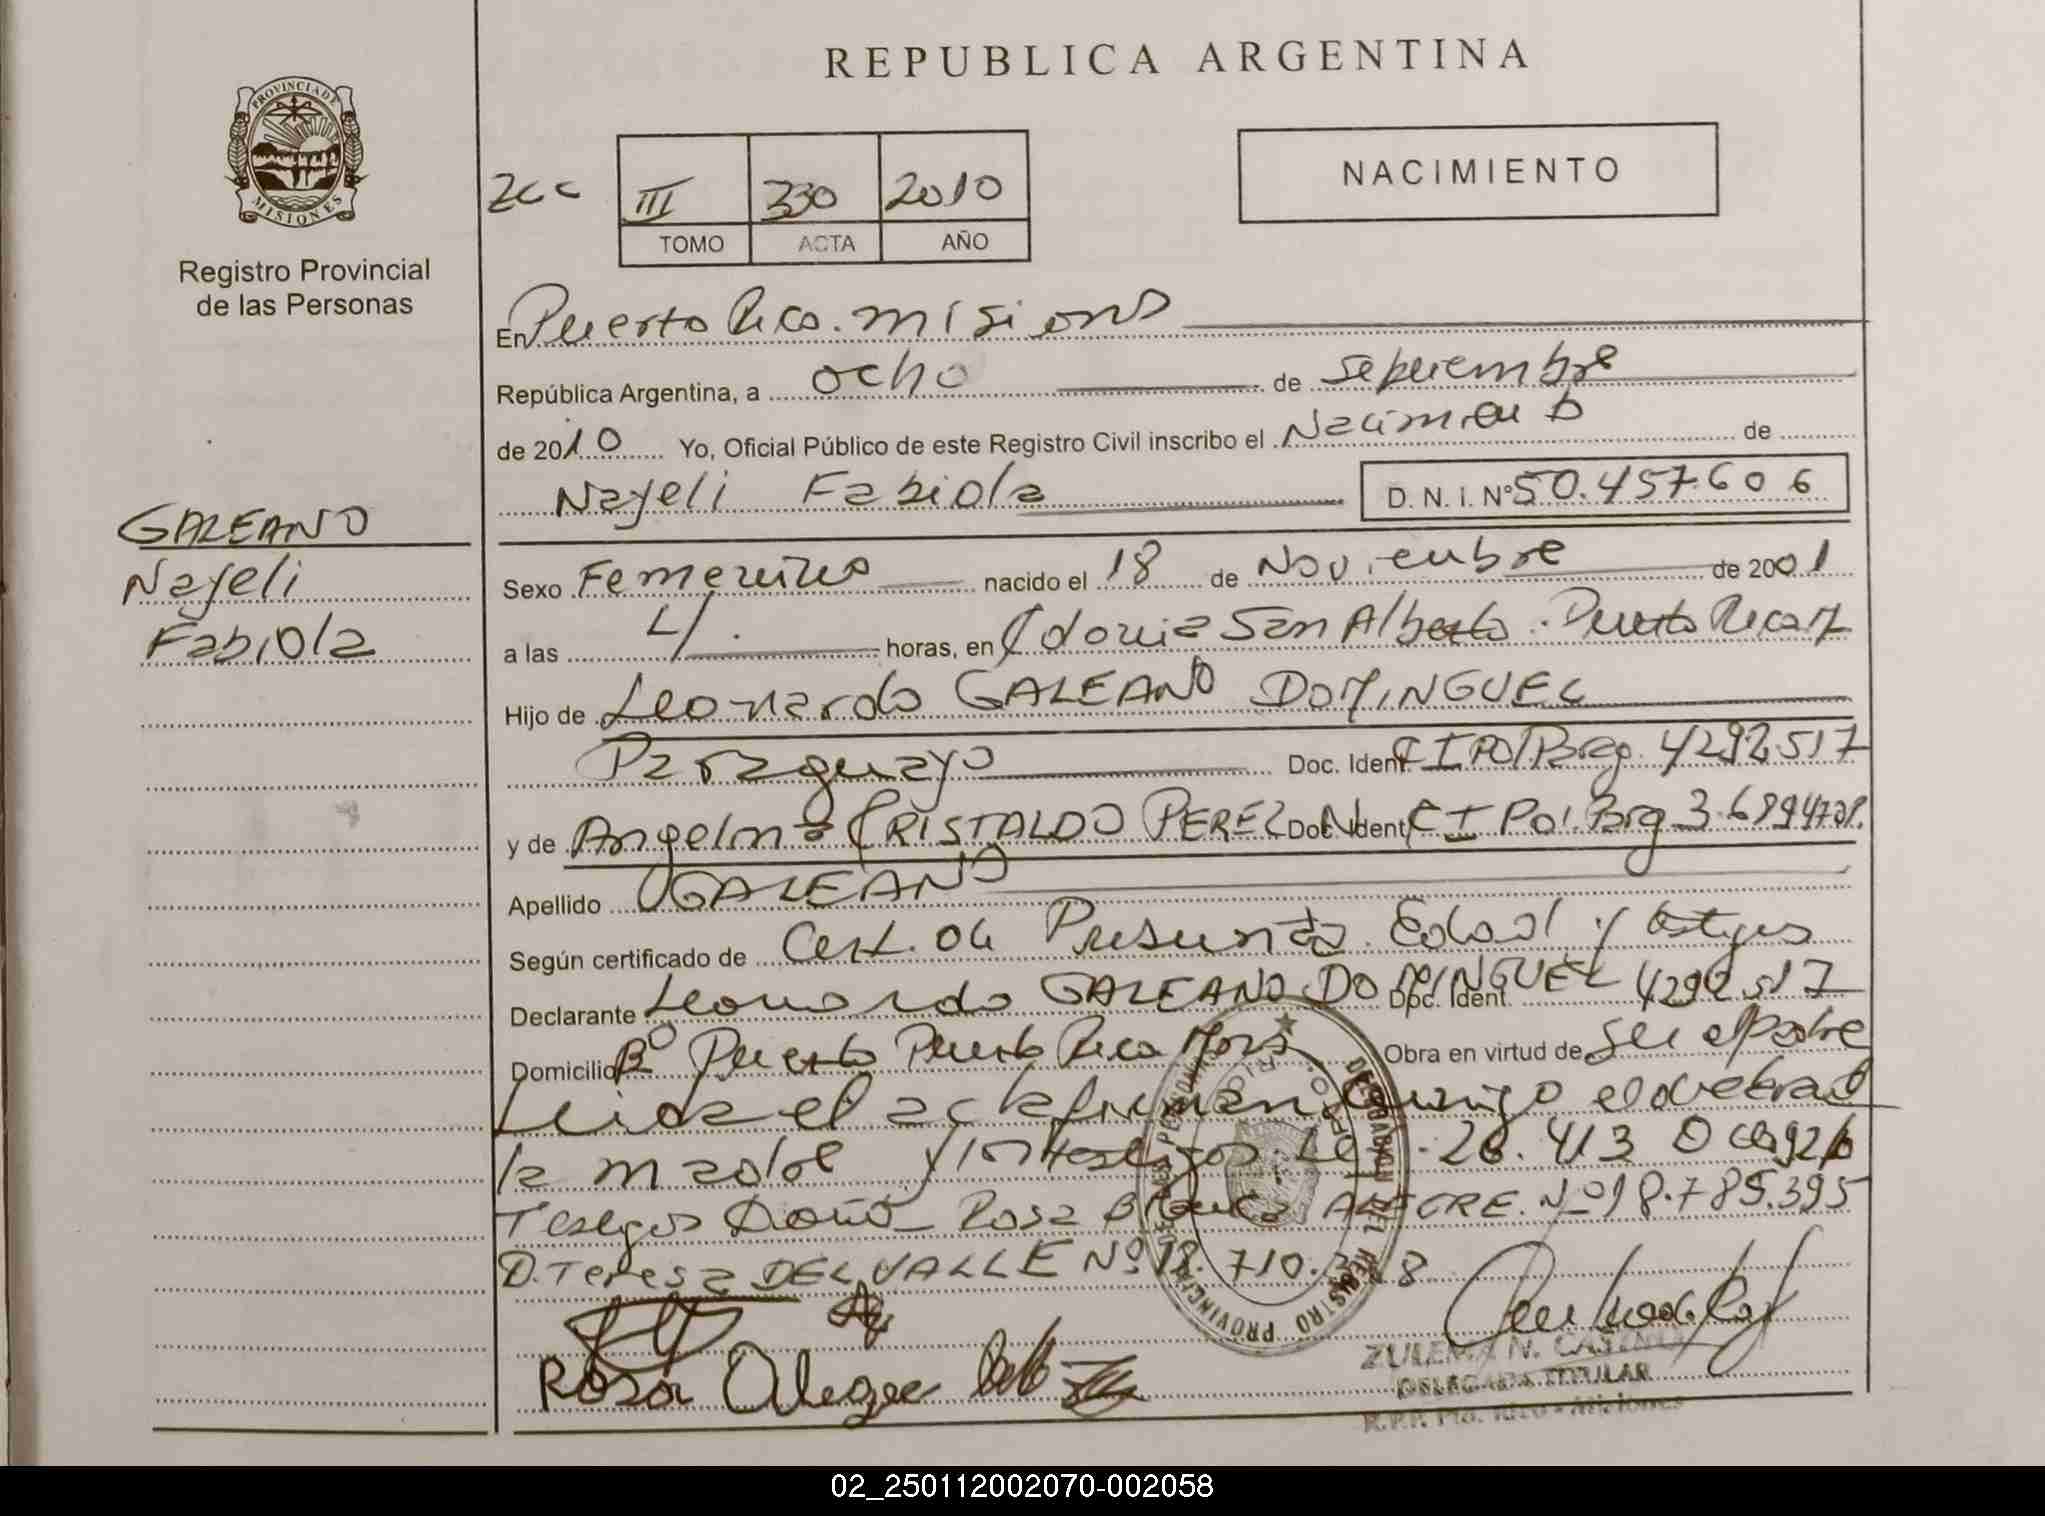 REPUBLICA ARGENTINA
PROVINCIA DE
MISIONES
Registro Provincial
de las Personas
III 330 2010
TOMO ACTA AÑO
NACIMIENTO
En Puerto Rico. misiones
República Argentina, a ocho de septiembre
de 2010 Yo, Oficial Público de este Registro Civil inscribo el Nacimiento de
Nayeli Fabiola D. N. I. Nº 50.457606
GALEANO
Nayeli
Fabiola
Sexo Femenino nacido el 18 de Noviembre de 2001
a las 4 horas, en Colonia San Alberto. Puerto Rico
Hijo de Leonardo GALEANO DOMINGUEZ
Paraguayo Doc. Ident. CI Pol Parag. 4292.517
y de Angelina CRISTALDO PEREZ Doc. Ident CI Pol. Parg
Apellido GALEANO
Según certificado de Cert. de Presunta Edad y testigos
Declarante Leonardo GALEANO DOMINGUEZ Doc. Ident. 4292.517
Domicilio Bº Puerto Puerto Rico Mnes Obra en virtud de ser el padre
Leida el acta firman conmigo el declarante
la madre y los testigos
Testigos Doña Rosa Blanca ALEGRE. Nº 18.785.395
D. Teresa DEL VALLE Nº
Rosa Alegre
REGISTRO PROVINCIAL DE LAS PERSONAS
ZULEMA N.
DELEGADA TITULAR
R.P.P. Pto. Rico - Misiones
02_250112002070-002058